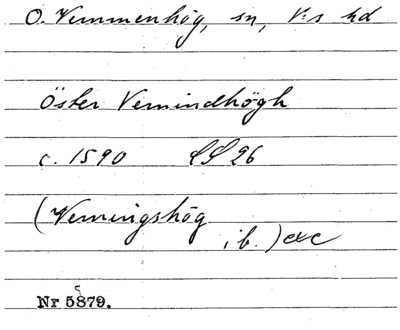 Ö. Vemmenhög, sn, V:s hd
Öster Vemindhögh
c. 1590 LS 26
(Vemingshög
ib.) etc
Nr 5879.